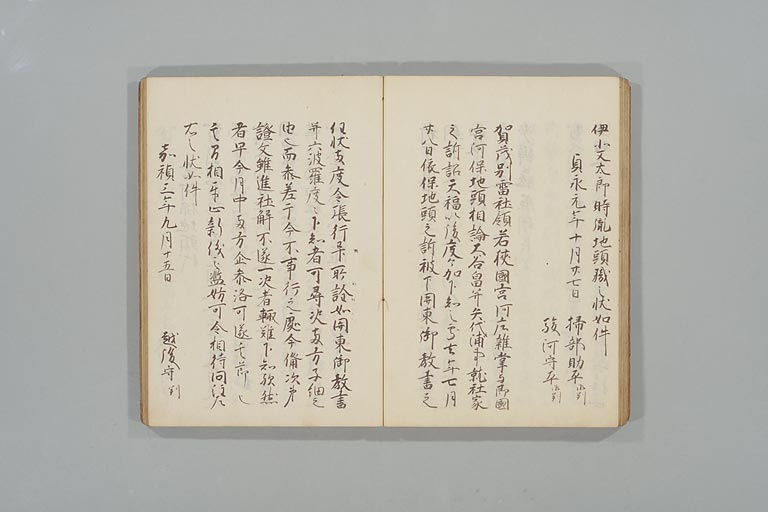 伊北又太郎時胤地頭職之状如件
貞永元年十月廿七日 掃部助平判
駿河守平判
賀茂別雷社領若狭國宮河庄雑掌与同國
宮河保地頭相論大谷畠并矢代浦事就社家
之訴訟天福以後度々加下知之處去年七月
廿八日依保地頭之訴被下関東御教書之
任状両度令張行畢所詮如関東御教書
并六波羅度々下知者可尋決両方子細之
由也而参差于今不事行之處今備次第
證文雖進社解不遂一決者輙難下知歟然
者早今月中両方企参洛可遂其節
其間相互止新儀之濫妨可令相待問注之
右之状如件
嘉禎三年九月十五日 越後守判